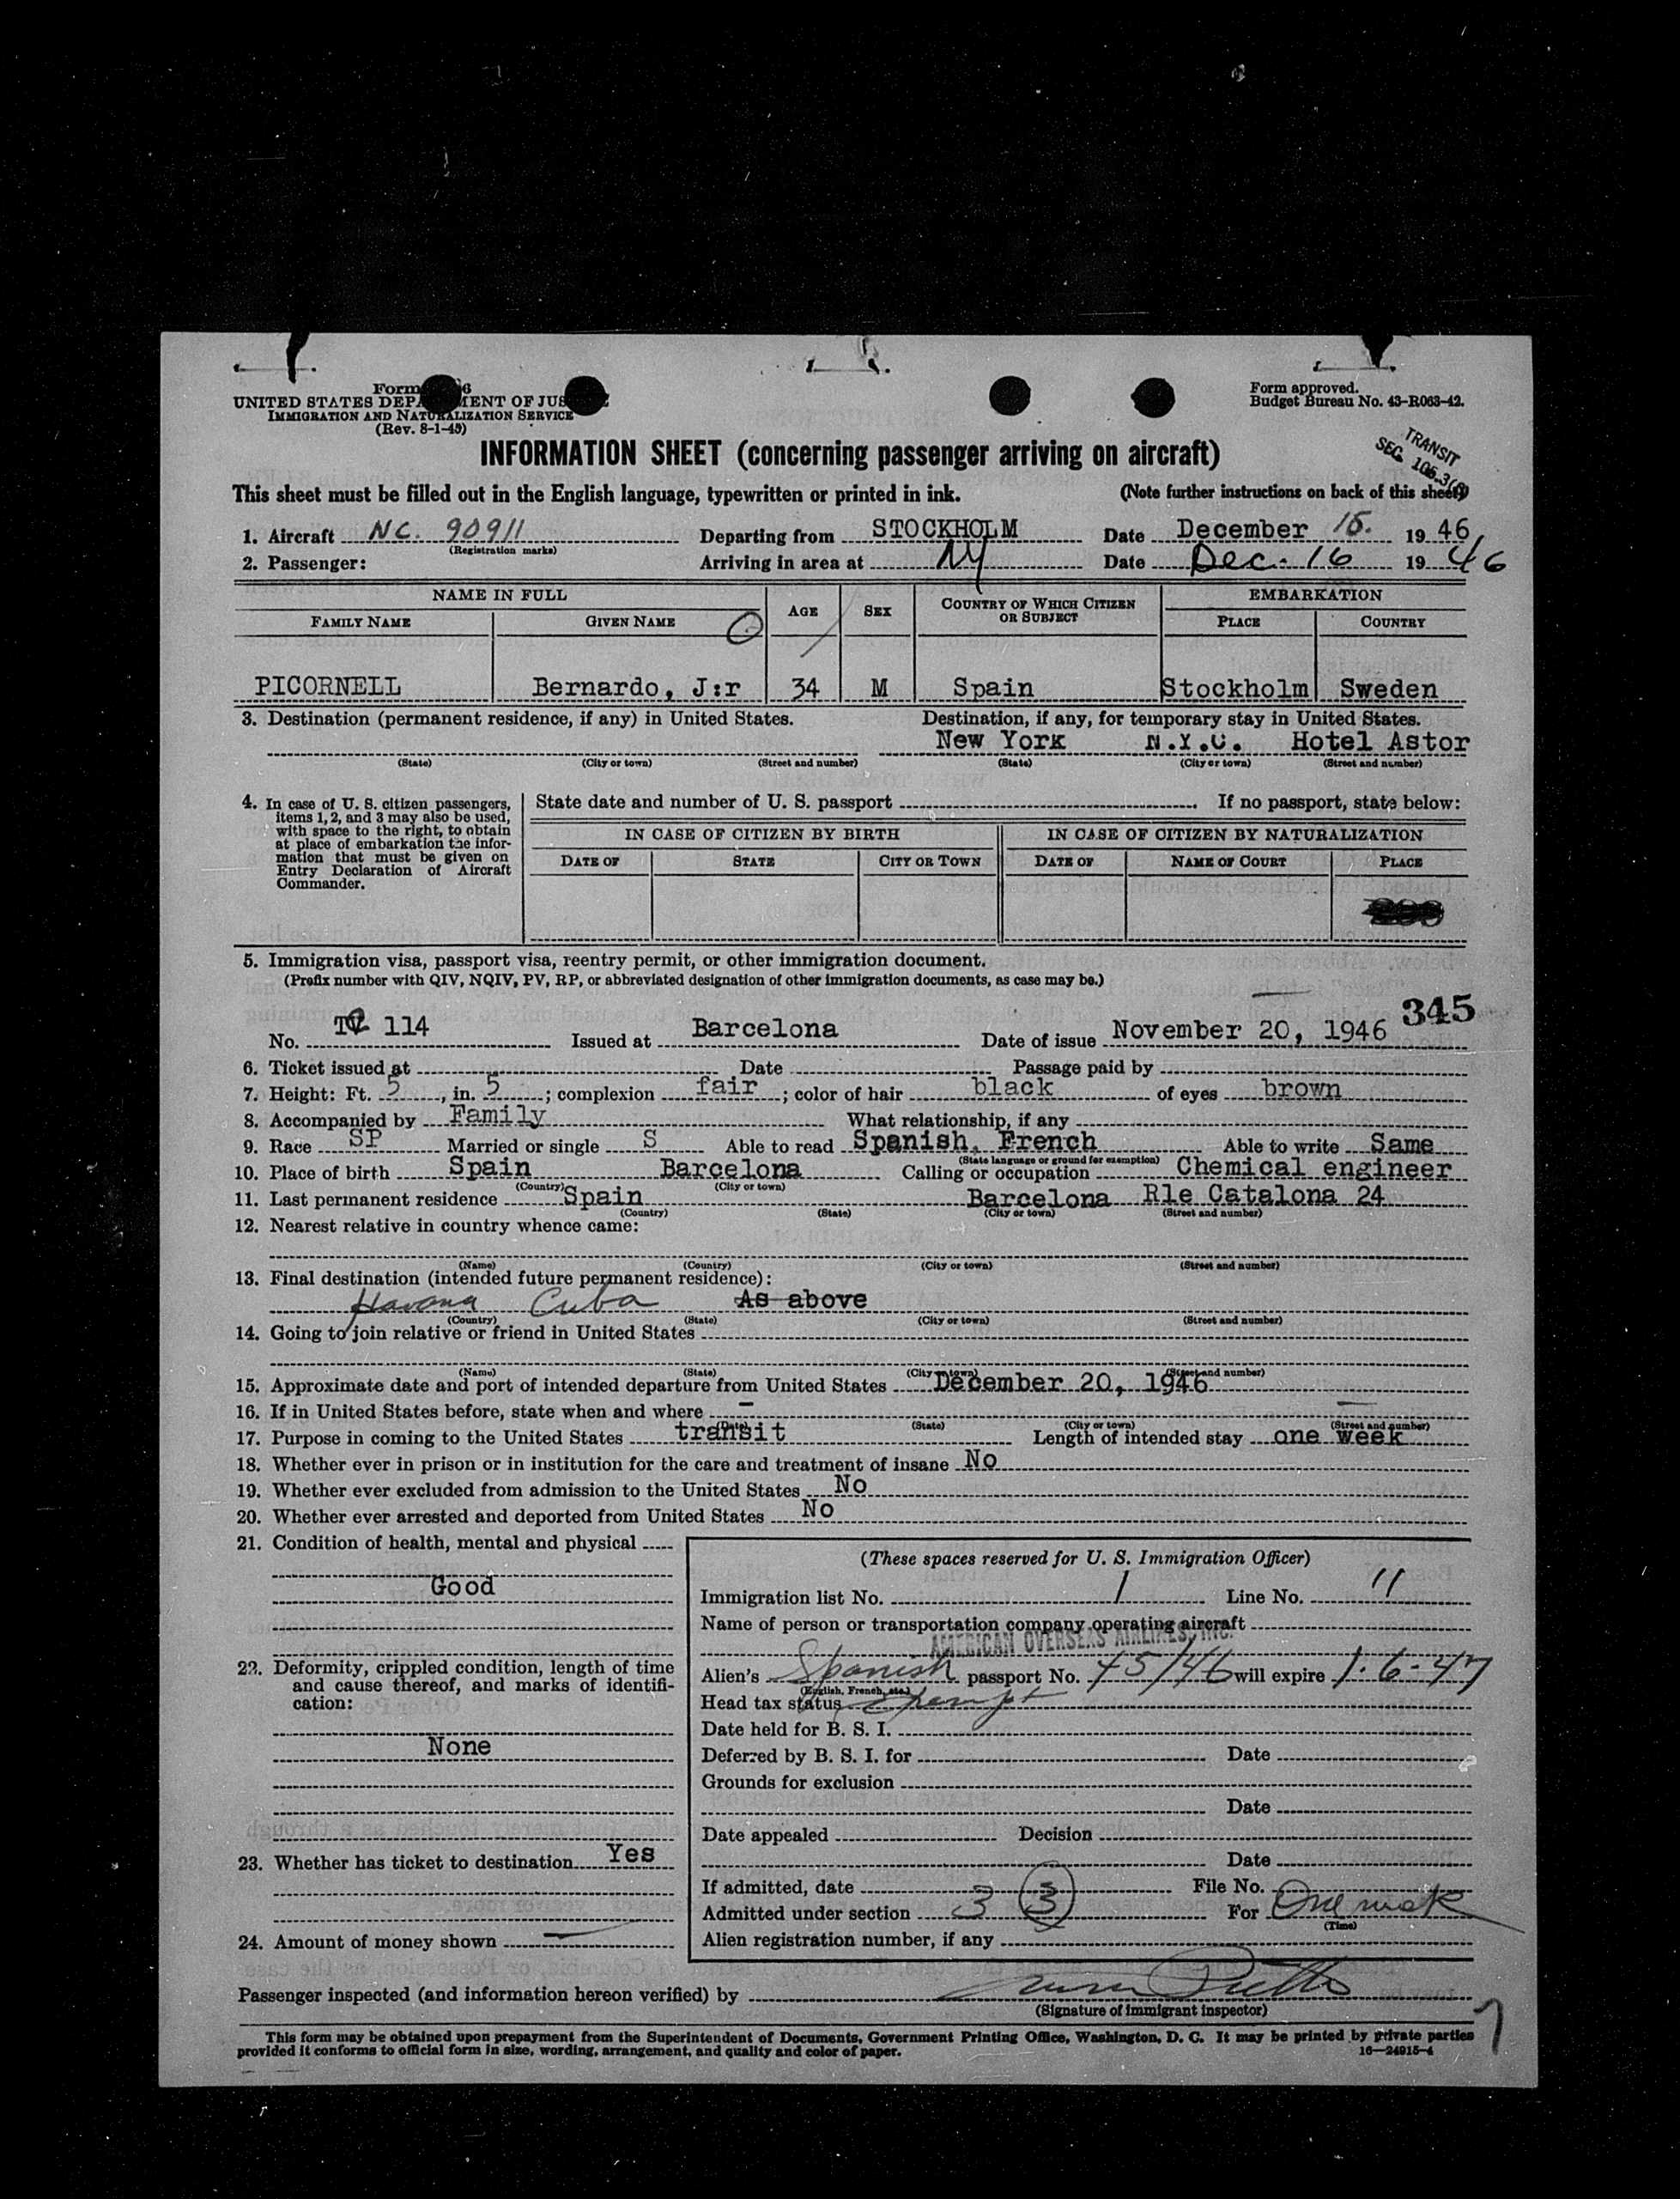 Form 6
UNITED STATES DEPARTMENT OF JUSTICE
IMMIGRATION AND NATURALIZATION SERVICE
(Rev. 8-1-45)
Form approved.
Budget Bureau No. 43-R063-42.
INFORMATION SHEET (concerning passenger arriving on aircraft)
TRANSIT
SEC. 106.3
This sheet must be filled out in the English language, typewritten or printed in ink. (Note further instructions on back of this sheet)
1. Aircraft NC. 90911 Departing from STOCKHOLM Date December 15. 1946
(Registration marks)
2. Passenger: Arriving in area at NY Date Dec. 16 1946
NAME IN FULL AGE SEX COUNTRY OF WHICH CITIZEN OR SUBJECT EMBARKATION
FAMILY NAME GIVEN NAME PLACE COUNTRY
PICORNELL Bernardo, J:r 34 M Spain Stockholm Sweden
3. Destination (permanent residence, if any) in United States. Destination, if any, for temporary stay in United States.
New York N.Y.C. Hotel Astor
(State) (City or town) (Street and number) (State) (City or town) (Street and number)
4. In case of U. S. citizen passengers, items 1, 2, and 3 may also be used, with space to the right, to obtain at place of embarkation the information that must be given on Entry Declaration of Aircraft Commander.
State date and number of U. S. passport If no passport, state below:
IN CASE OF CITIZEN BY BIRTH IN CASE OF CITIZEN BY NATURALIZATION
DATE OF STATE CITY OR TOWN DATE OF NAME OF COURT PLACE
5. Immigration visa, passport visa, reentry permit, or other immigration document.
(Prefix number with QIV, NQIV, PV, RP, or abbreviated designation of other immigration documents, as case may be.)
345
No. TC 114 Issued at Barcelona Date of issue November 20, 1946
6. Ticket issued at Date Passage paid by
7. Height: Ft. 5, in. 5; complexion fair; color of hair black of eyes brown
8. Accompanied by Family What relationship, if any
9. Race SP Married or single S Able to read Spanish, French Able to write Same
(State language or ground for exemption)
10. Place of birth Spain Barcelona Calling or occupation Chemical engineer
(Country) (City or town)
11. Last permanent residence Spain Barcelona Rle Catalona 24
(Country) (State) (City or town) (Street and number)
12. Nearest relative in country whence came:
(Name) (Country) (City or town) (Street and number)
13. Final destination (intended future permanent residence):
Havana Cuba As above
(Country) (State) (City or town) (Street and number)
14. Going to join relative or friend in United States
(Name) (State) (City or town) (Street and number)
15. Approximate date and port of intended departure from United States December 20, 1946
16. If in United States before, state when and where -
(Date) (State) (City or town) (Street and number)
17. Purpose in coming to the United States transit Length of intended stay one week
18. Whether ever in prison or in institution for the care and treatment of insane No
19. Whether ever excluded from admission to the United States No
20. Whether ever arrested and deported from United States No
21. Condition of health, mental and physical
Good
22. Deformity, crippled condition, length of time and cause thereof, and marks of identification:
None
23. Whether has ticket to destination Yes
24. Amount of money shown
(These spaces reserved for U. S. Immigration Officer)
Immigration list No. 1 Line No. 11
Name of person or transportation company operating aircraft
AMERICAN OVERSEAS AIRLINES, INC.
Alien's Spanish passport No. 45/46 will expire 1-6-47
(English, French, etc.)
Head tax status Exempt
Date held for B. S. I.
Deferred by B. S. I. for Date
Grounds for exclusion
Date
Date appealed Decision
Date
If admitted, date File No.
Admitted under section 3 3 For One week
(Time)
Alien registration number, if any
Passenger inspected (and information hereon verified) by
(Signature of immigrant inspector)
This form may be obtained upon prepayment from the Superintendent of Documents, Government Printing Office, Washington, D. C. It may be printed by private parties
provided it conforms to official form in size, wording, arrangement, and quality and color of paper. 16—24915-4